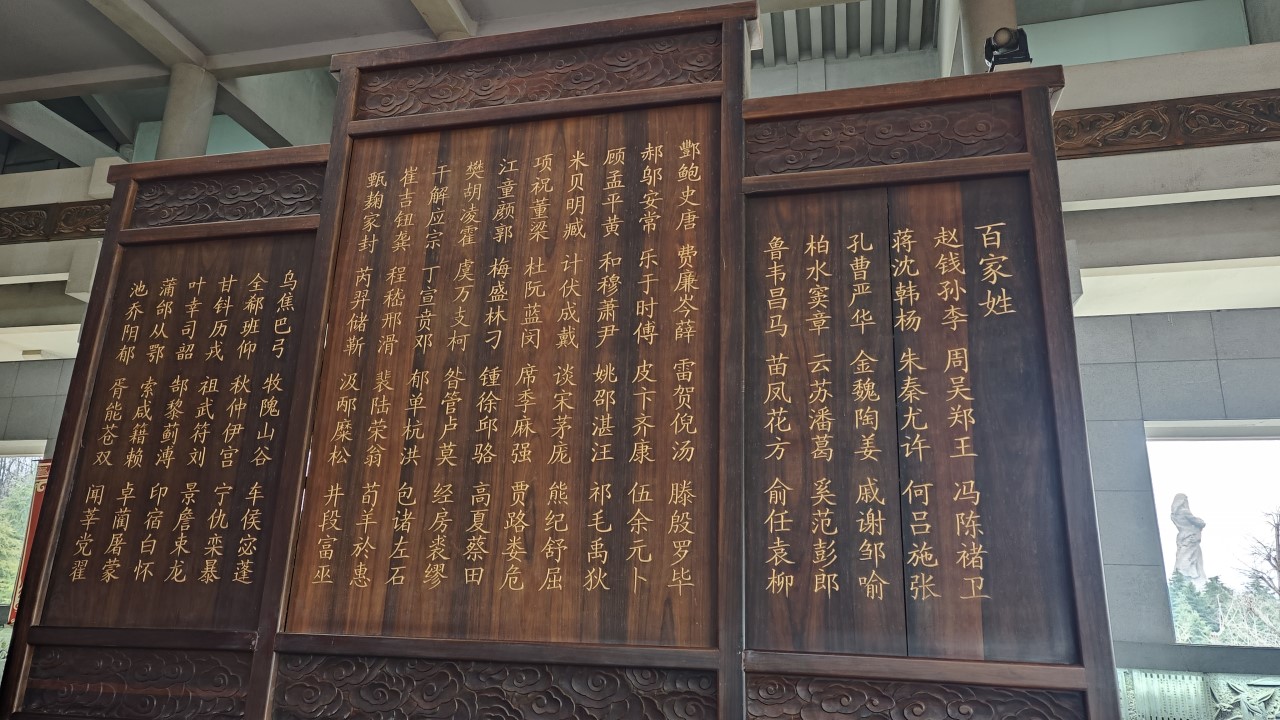 百家姓
赵钱孙李 周吴郑王 冯陈褚卫
蒋沈韩杨 朱秦尤许 何吕施张
孔曹严华 金魏陶姜 戚谢邹喻
柏水窦章 云苏潘葛 奚范彭郎
鲁韦昌马 苗凤花方 俞任袁柳
酆鲍史唐 费廉岑薛 雷贺倪汤 滕殷罗毕
郝邬安常 乐于时傅 皮卞齐康 伍余元卜
顾孟平黄 和穆萧尹 姚邵湛汪 祁毛禹狄
米贝明臧 计伏成戴 谈宋茅庞 熊纪舒屈
项祝董梁 杜阮蓝闵 席季麻强 贾路娄危
江童颜郭 梅盛林刁 锺徐邱骆 高夏蔡田
樊胡凌霍 虞万支柯 昝管卢莫 经房裘缪
干解应宗 丁宣贲邓 郁单杭洪 包诸左石
崔吉钮龚 程嵇邢滑 裴陆荣翁 荀羊於惠
甄麹家封 芮羿储靳 汲邴糜松 井段富巫
乌焦巴弓 牧隗山谷 车侯宓蓬
全郗班仰 秋仲伊宫 宁仇栾暴
甘钭历戎 祖武符刘 景詹束龙
叶幸司韶 郜黎蓟溥 印宿白怀
蒲邰从鄂 索咸籍赖 卓蔺屠蒙
池乔阳郁 胥能苍双 闻莘党翟